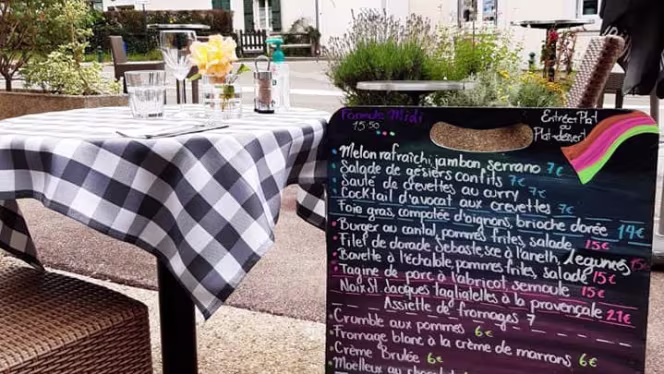 Formule Midi
15.50
Entrée-Plat
ou
Plat-dessert
Melon rafraichi, jambon, serrano 7€
Salade de gésiers confits 7€
Sauté de crevettes au curry 7€
Cocktail d'avocat aux crevettes 7€
Foie gras, compotée d'oignons, brioche dorée 14€
Burger au cantal, pommes frites, salade 15€
Filet de dorade sebaste, see à l'aneth, legumes 15€
Bavette à l'échable, pommes frites, salade 15€
Tagine de porc à l'abricot, semoule 15€
Noix St Jacques tagliatelles à la provençale 21€
Assiette de fromages 7
Crumble aux pommes 6€
Fromage blanc à la crème de marrons 6€
Crème Brulée 6€
Moelleux au chocolat